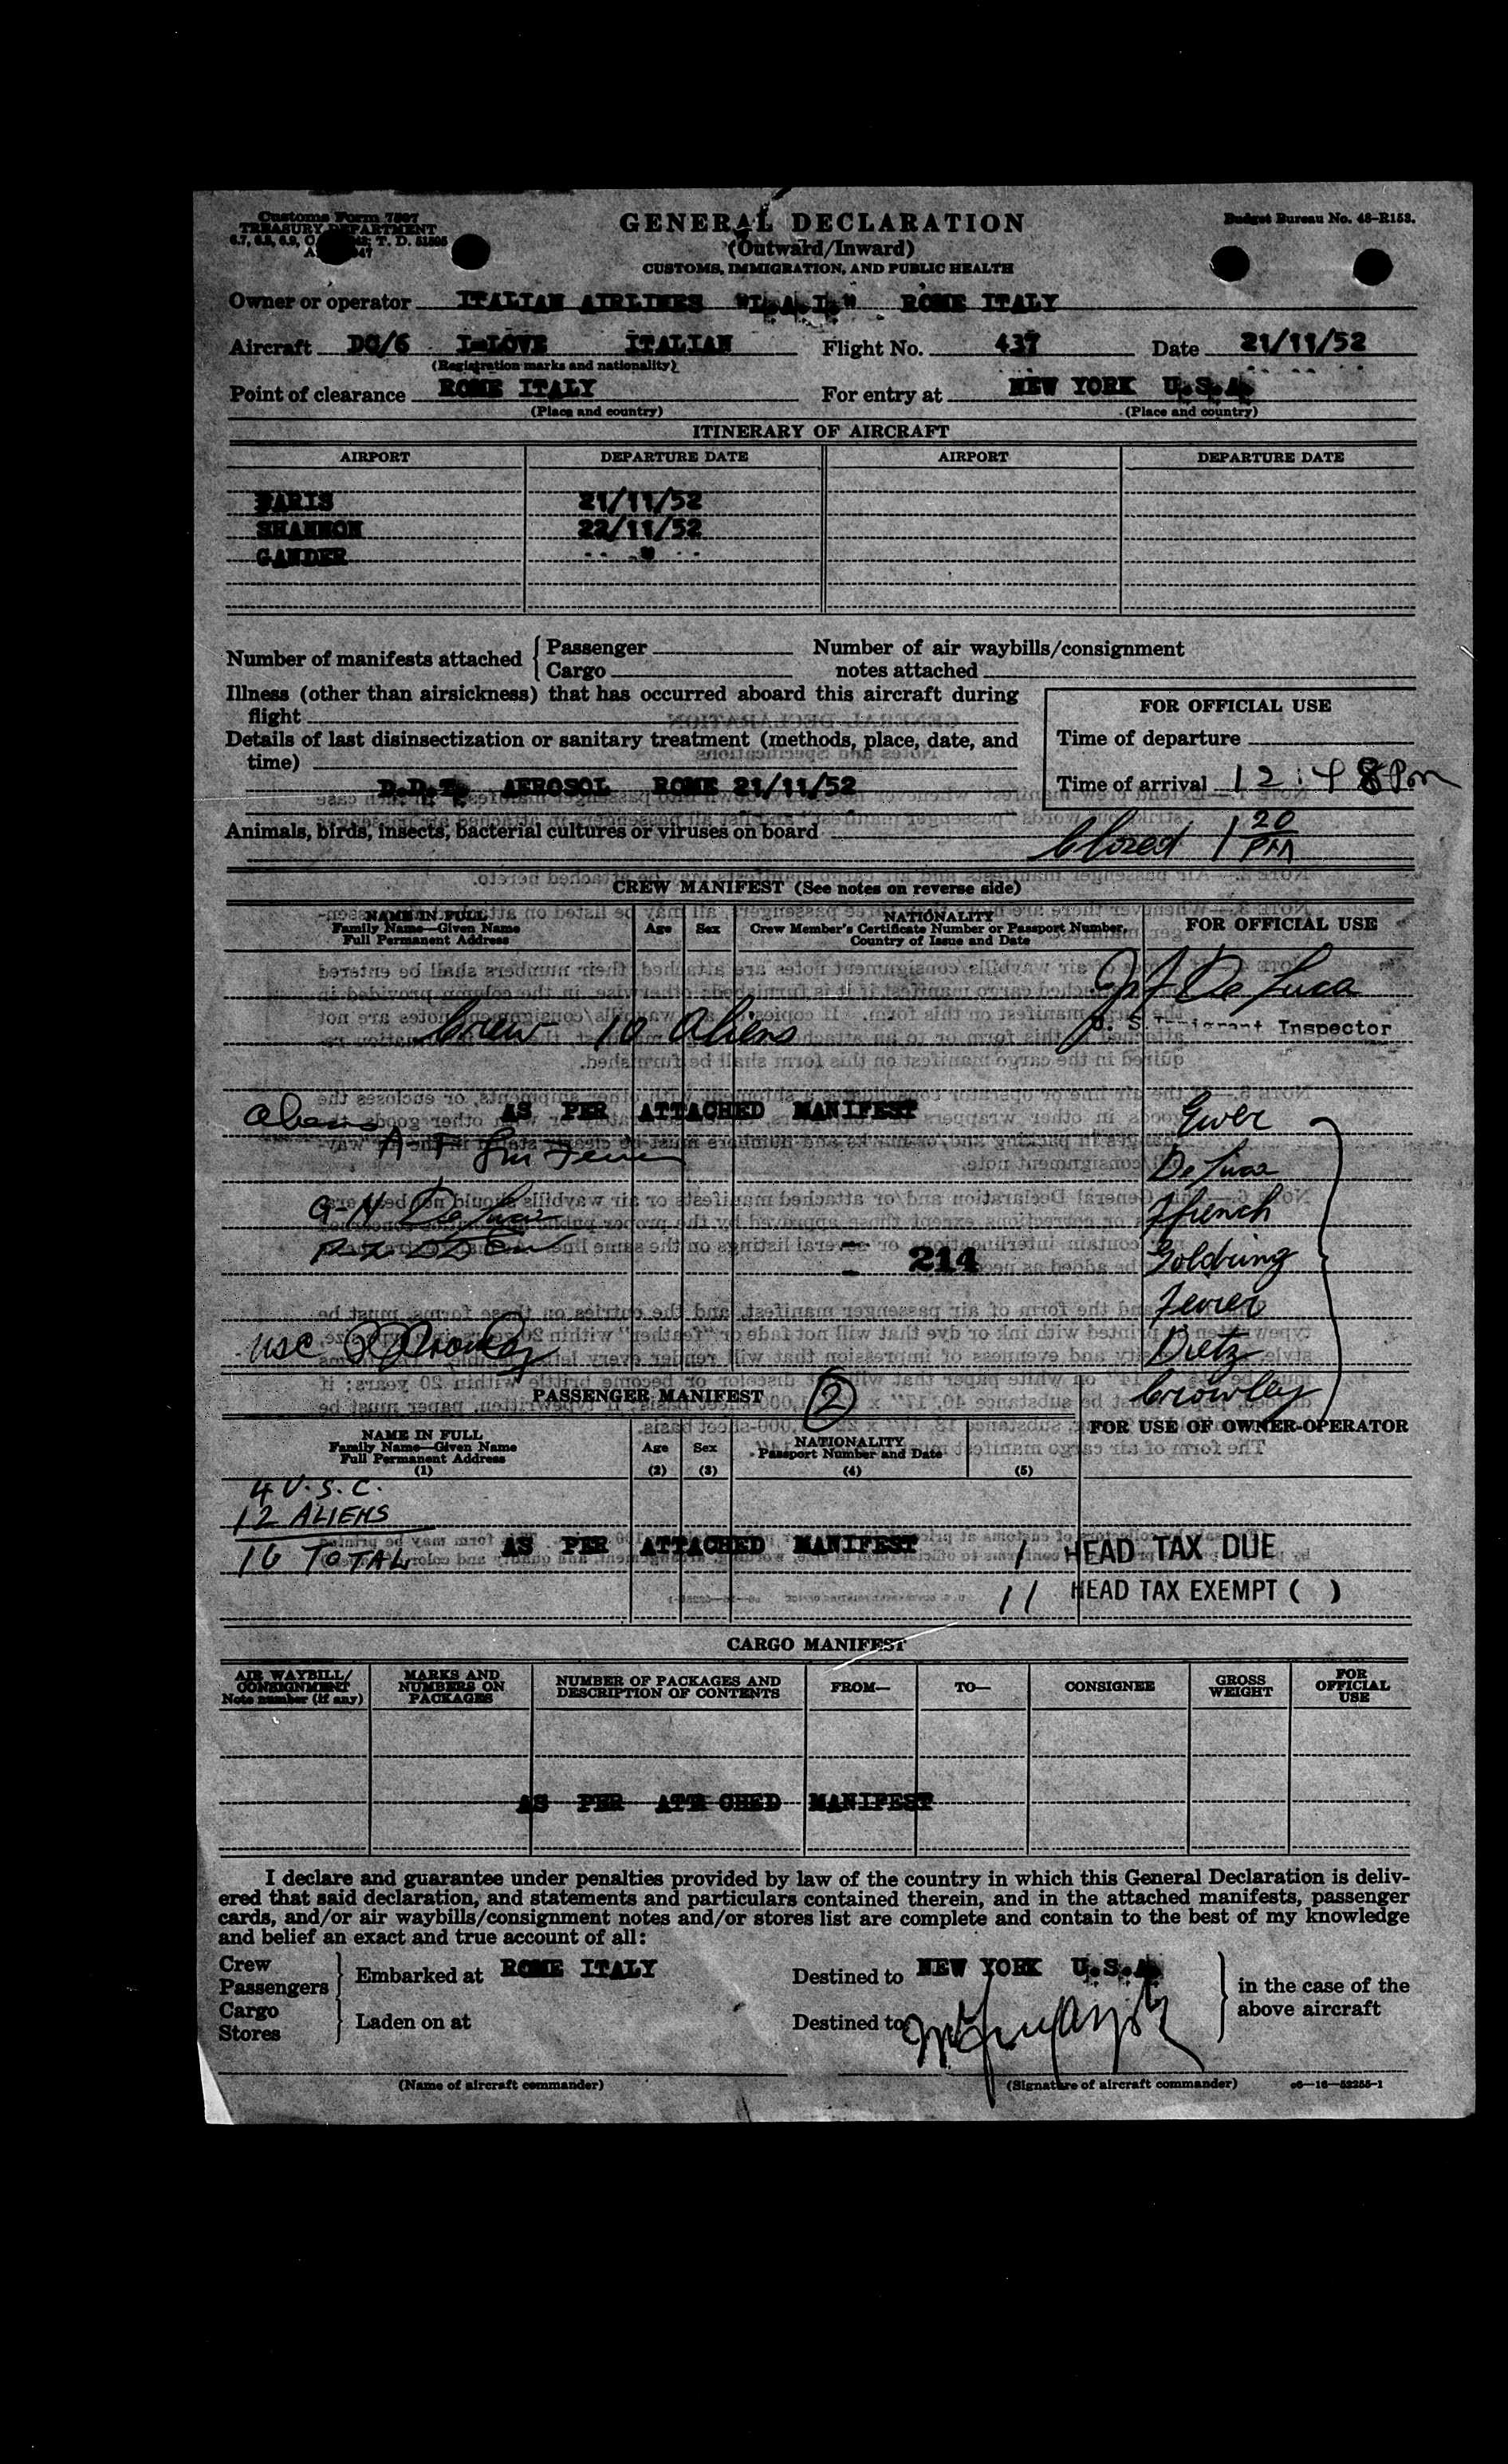 Customs Form 7507
TREASURY DEPARTMENT
GENERAL DECLARATION
(Outward/Inward)
CUSTOMS, IMMIGRATION, AND PUBLIC HEALTH
Budget Bureau No. 48-R153.
Owner or operator ITALIAN AIRLINES "L.A.I." ROME ITALY
Aircraft DC/6 I-LOVE ITALIAN Flight No. 437 Date 21/11/52
(Registration marks and nationality)
Point of clearance ROME ITALY For entry at NEW YORK U.S.A.
(Place and country) (Place and country)
ITINERARY OF AIRCRAFT
AIRPORT DEPARTURE DATE AIRPORT DEPARTURE DATE
PARIS 21/11/52
SHANNON 22/11/52
GANDER "
Number of manifests attached { Passenger
Cargo
Number of air waybills/consignment
notes attached
Illness (other than airsickness) that has occurred aboard this aircraft during
flight
Details of last disinsectization or sanitary treatment (methods, place, date, and
time)
D.D.T. AEROSOL ROME 21/11/52
FOR OFFICIAL USE
Time of departure
Time of arrival 12:48 Pm
Animals, birds, insects, bacterial cultures or viruses on board
Closed 1 20 PM
CREW MANIFEST (See notes on reverse side)
NAME IN FULL
Family Name—Given Name
Full Permanent Address
Age Sex
NATIONALITY
Crew Member's Certificate Number or Passport Number,
Country of Issue and Date
FOR OFFICIAL USE
De Luca
U. S. Immigrant Inspector
Crew 10 Aliens
AS PER ATTACHED MANIFEST
Aliens
Ewer
De Luca
Ffrench
Goldring
214
Ferrer
Dietz
USC
Crowley
PASSENGER MANIFEST (2)
NAME IN FULL
Family Name—Given Name
Full Permanent Address
(1)
Age
(2)
Sex
(3)
NATIONALITY
Passport Number and Date
(4)
(5)
FOR USE OF OWNER-OPERATOR
4 U.S.C.
12 ALIENS
16 TOTAL
AS PER ATTACHED MANIFEST
1 HEAD TAX DUE
11 HEAD TAX EXEMPT ( )
CARGO MANIFEST
AIR WAYBILL/
CONSIGNMENT
Note number (if any)
MARKS AND
NUMBERS ON
PACKAGES
NUMBER OF PACKAGES AND
DESCRIPTION OF CONTENTS
FROM—
TO—
CONSIGNEE
GROSS
WEIGHT
FOR
OFFICIAL
USE
AS PER ATTACHED MANIFEST
I declare and guarantee under penalties provided by law of the country in which this General Declaration is deliv-
ered that said declaration, and statements and particulars contained therein, and in the attached manifests, passenger
cards, and/or air waybills/consignment notes and/or stores list are complete and contain to the best of my knowledge
and belief an exact and true account of all:
Crew
Passengers } Embarked at ROME ITALY Destined to NEW YORK U.S.A.
Cargo
Stores } Laden on at Destined to
} in the case of the
above aircraft
(Name of aircraft commander) (Signature of aircraft commander)